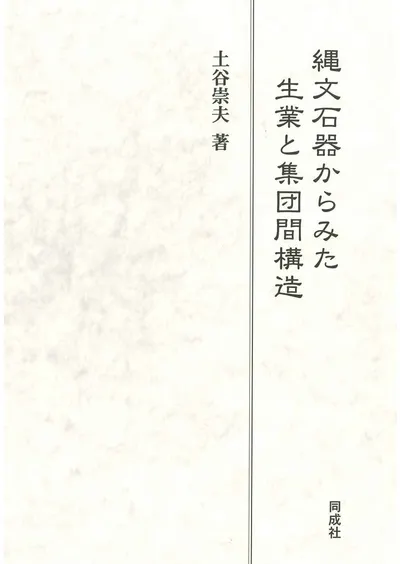 縄文石器からみた
生業と集団間構造
土谷崇夫 著
同成社